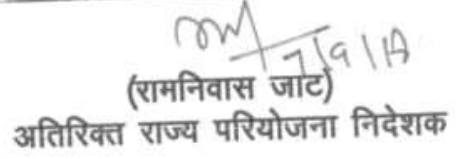 7/9/17
(रामनिवास जाट)
अतिरिक्त राज्य परियोजना निदेशक